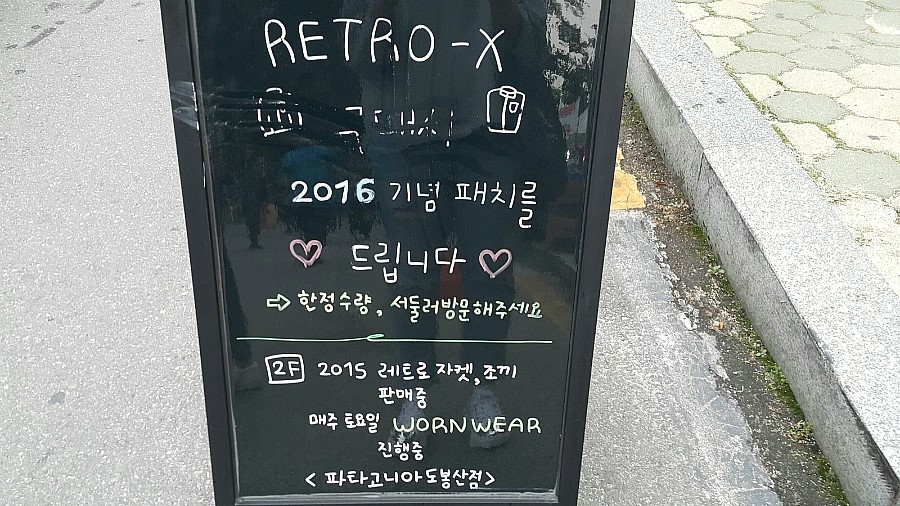 RETRO-X
2016 기념 패치를
드립니다
⇨ 한정수량, 서둘러방문해주세요
2F 2015 레트로 자켓, 조끼
판매중
매주 토요일 WORN WEAR
진행중
<파타고니아도봉산점>